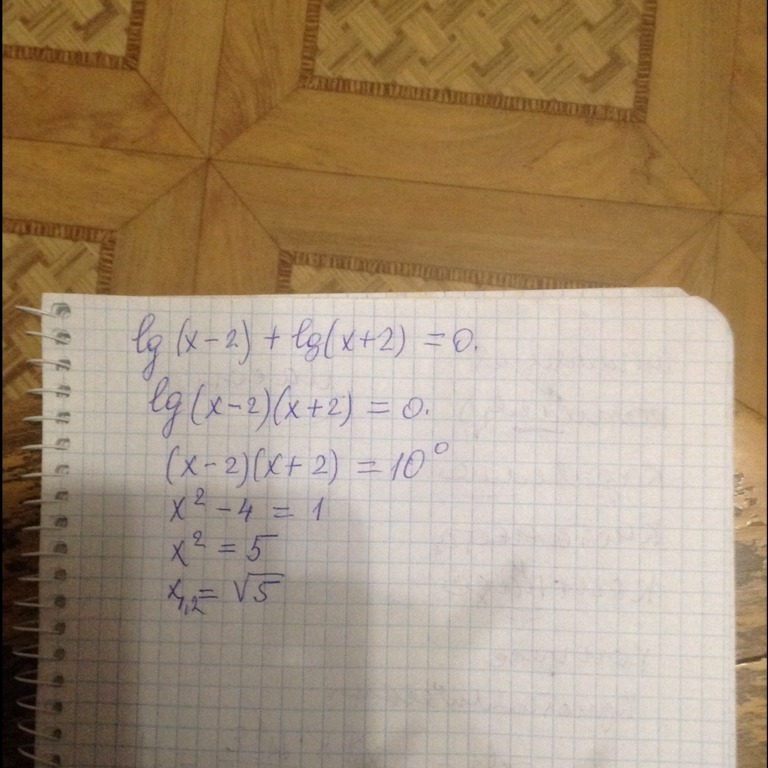 lg (x-2) + lg(x+2) = 0.
lg (x-2)(x+2) = 0.
(x-2)(x+2) = 10⁰
x² - 4 = 1
x² = 5
x₁,₂ = √5